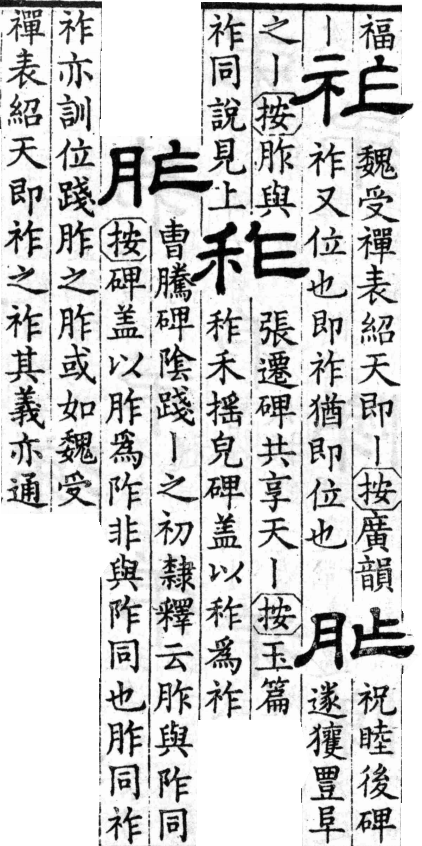 福
丨
祚
魏受禪表紹天即丨按廣韻
祚又位也即祚猶即位也
胙
祝睦後碑
遂獲豊阜
之丨按胙與
祚同說見上
秨
張遷碑共享天丨按玉篇
秨禾搖皃碑盖以秨爲祚
胙
曹騰碑陰踐丨之初隸釋云胙與阼同
按碑盖以胙爲阼非與阼同也胙同祚
祚亦訓位踐胙之胙或如魏受
禪表紹天即祚之祚其義亦通